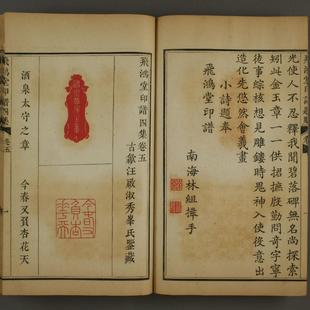 光使人不忍釋我聞碧落碑無名尚探索
矧此金玉章一一供招撫厥勤問奇字寧
徒事綜核想見雕鏤時鬼神入使後意出
造化先悠然會羲畫
小詩題奉
飛鴻堂印譜
南海林組擇手
飛鴻堂印譜四集卷五
古歙汪啟淑秀峯氏鑒藏
酒泉太守之章
今春又負杏花天
今春又負杏花天
卷五